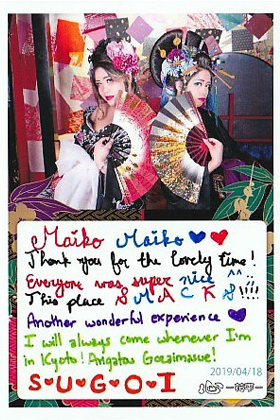 Maiko Maiko 💙❤
Thank you for the lovely time!
Everyone was super nice ^^..
This place S M A C K S!!!!
Another wonderful experience 💜
I will always come whenever I'm
in Kyoto! Arigatou Gozaimasue!
2019/04/18
S♥U♥G♥O♥I